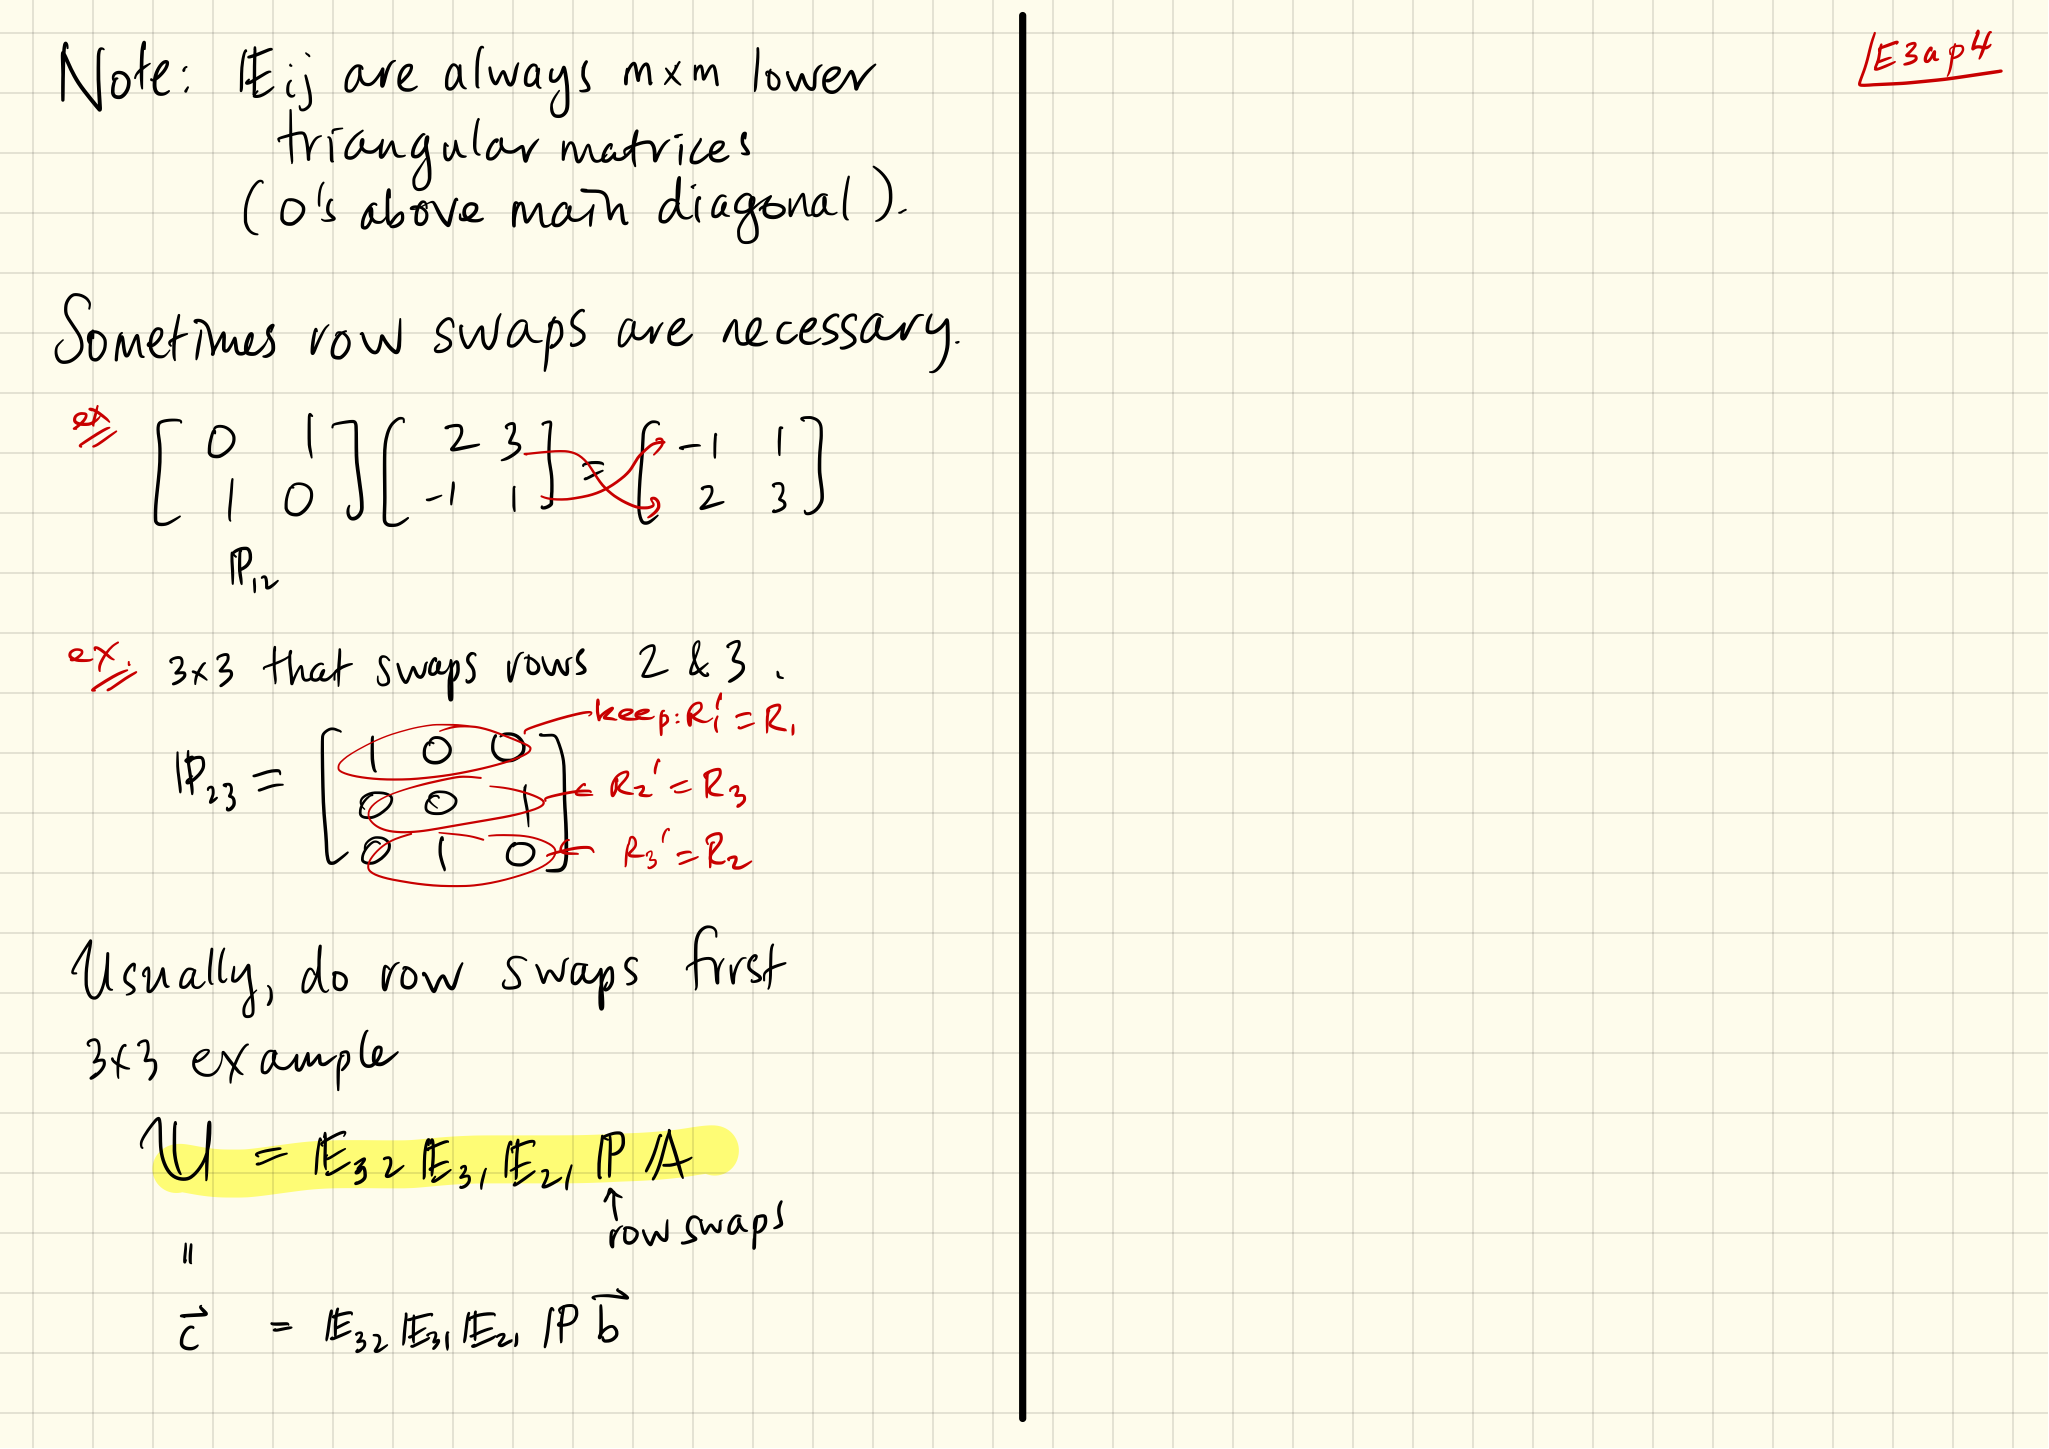 Note: 𝔼ij are always m×m lower
triangular matrices
(0's above main diagonal).
Sometimes row swaps are necessary.
ex [0 1; 1 0] [2 3; -1 1] = [-1 1; 2 3]
ℙ₁₂
ex. 3×3 that swaps rows 2 & 3.
ℙ₂₃ = [1 0 0; 0 0 1; 0 1 0]
keep: R₁' = R₁
R₂' = R₃
R₃' = R₂
Usually, do row swaps first
3×3 example
𝕌 = 𝔼₃₂ 𝔼₃₁ 𝔼₂₁ ℙ 𝔸
↑
row swaps
=
c⃗ = 𝔼₃₂ 𝔼₃₁ 𝔼₂₁ ℙ b⃗
E3ap4